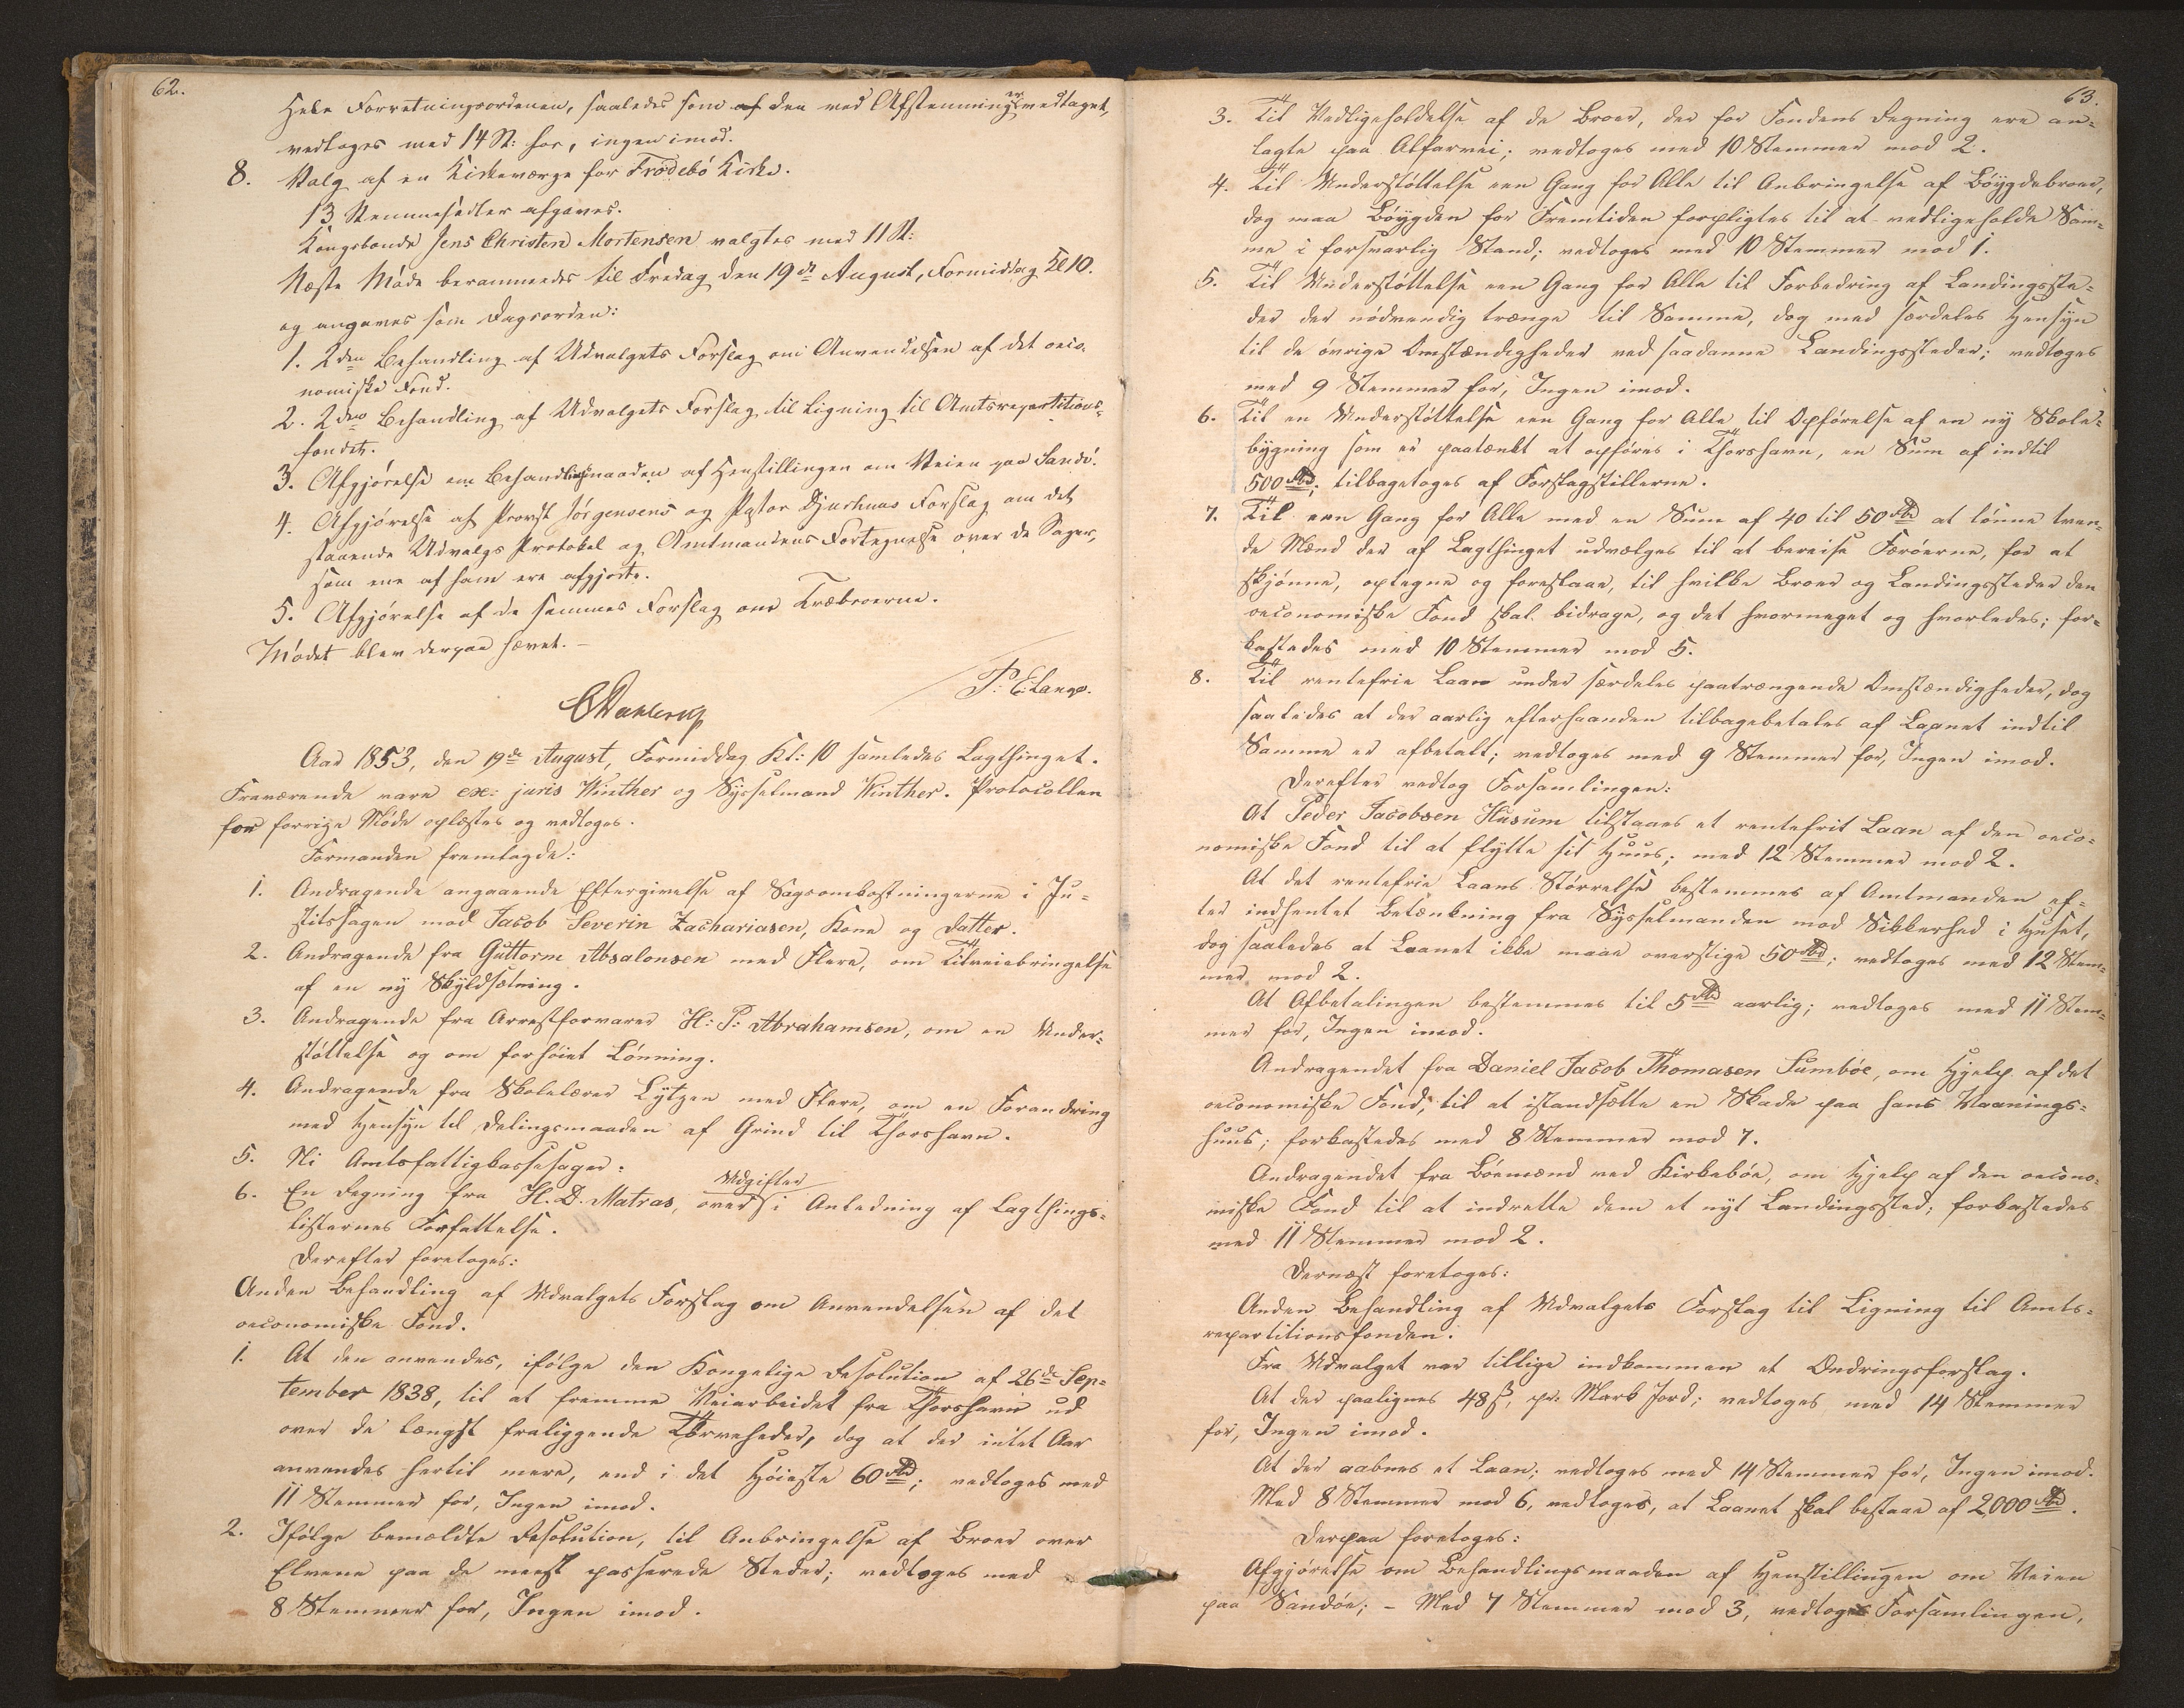 62.
Hele Forretningsordenen, saaledes som af den ved Afstemning er vedtaget,
vedtoges med 14 St: for, ingen imod.
8. Valg af en Kirkeværge for Frodebø Kirke.
13 Stemmesedler afgaves.
Kongsbonde Jens Christen Mortensen valgtes med 11 St:
Næste Møde berammedes til Fredag den 19de August, Formiddag Kl 10.
og angaves som Dagsorden:
1. 2den Behandling af Udvalgets Forslag om Anvendelsen af det oeco-
nomiske Fond.
2. 2den Behandling af Udvalgets Forslag til Ligning til Amtsrepartitions-
fondet.
3. Afgjørelse om Behandlingsmaaden af Henstillingen om Veien paa Sandø.
4. Afgjørelse af Provst Jørgensens og Pastor Djurhuus Forslag om det
staaende Udvalgs Protokol og Amtmandens Fortegnelse over de Sager,
som ene af ham ere afgjorte.
5. Afgjørelse af de sammes Forslag om Træbroerne.
Mødet blev derpaa hævet. —
P. E. Lange.
CDahlerup
Aar 1853, den 19de August, Formiddag Kl: 10 samledes Lagthinget.
Fraværende vare ex: juris Winther og Sysselmand Winther. Protocollen
for forrige Møde oplæstes og vedtoges.
Formanden fremlagde:
1. Andragende angaaende Eftergivelse af Sagsomkostningerne i Ju-
stitssagen mod Jacob Severin Zachariasen, Kone og Datter.
2. Andragende fra Guttorm Absalonsen med Flere, om Tilveiebringelse
af en ny Skyldsætning.
3. Andragende fra Arrestforvarer H: P: Abrahamsen, om en Under-
støttelse og om forhøiet Lønning.
4. Andragende fra Skolelærer Lützen med Flere, om en Forandring
med Hensyn til Delingsmaaden af Grind til Thorshavn.
5. Ni Amtsfattigkassesager:
6. En Regning fra H. D. Matras, over Udgifter i Anledning af Lagthings-
listernes Forfattelse.
Derefter foretoges:
Anden Behandling af Udvalgets Forslag om Anvendelsen af det
oeconomiske Fond.
1. At den anvendes, ifølge den Kongelige Resolution af 26de Sep-
tember 1838, til at fremme Veiarbeidet fra Thorshavn ud
over de længst fraliggende Tørveheder, dog at der intet Aar
anvendes hertil mere, end i det Høieste 60 Rbd; vedtoges med
11 Stemmer for, Ingen imod.
2. Ifølge bemældte Resolution, til Anbringelse af Broer over
Elvene paa de meest passerede Steder; vedtoges med
8 Stemmer for, Ingen imod.
63.
3. Til Vedligeholdelse af de Broer, der for Fondens Regning ere an-
lagte paa Alfarvei; vedtoges med 10 Stemmer mod 2.
4. Til Understøttelse een Gang for Alle til Anbringelse af Bøygdebroer,
dog maa Bøygden for Fremtiden forpligtes til at vedligeholde Sam-
me i forsvarlig Stand; vedtoges med 10 Stemmer mod 1.
5. Til Understøttelse een Gang for Alle til Forbedring af Landingsste-
der der nødvendig trænge til Samme, dog med særdeles Hensyn
til de øvrige Omstændigheder ved saadanne Landingssteder; vedtoges
med 9 Stemmer for, Ingen imod.
6. Til en Understøttelse een Gang for Alle til Opførelse af en ny Skole-
bygning som er paatænkt at opføres i Thorshavn, en Sum af indtil
500 Rbd; tilbagetoges af Forslagstillerne.
7. Til een Gang for Alle med en Sum af 40 til 50 Rbd at lønne tven-
de Mænd der af Lagthinget udvælges til at bereise Færøerne, for at
skjønne, optegne og foreslaae, til hvilke Broer og Landingssteder den
oeconomiske Fond skal bidrage, og det hvormeget og hvorledes; for-
kastedes med 10 Stemmer mod 5.
8. Til rentefrie Laan under særdeles paatrængende Omstændigheder, dog
saaledes at der aarlig efterhaanden tilbagebetales af Laanet indtil
Samme er afbetalt; vedtoges med 9 Stemmer for, Ingen imod.
Derefter vedtog Forsamlingen:
At Peder Jacobsen Husum tilstaaes et rentefrit Laan af den oeco-
nomiske Fond til at flytte sit Huus; med 12 Stemmer mod 2.
At det rentefrie Laans Størrelse bestemmes af Amtmanden ef-
ter indhentet Betænkning fra Sysselmanden mod Sikkerhed i Huset,
dog saaledes at Laanet ikke maae overstige 50 Rbd; vedtoges med 12 Stem-
mer mod 2.
At Afbetalingen bestemmes til 5 Rbd aarlig; vedtoges med 11 Stem-
mer for, Ingen imod.
Andragendet fra Daniel Jacob Thomasen Sumbøe, om Hjelp af det
oeconomiske Fond, til at istandsætte en Skade paa hans Vaanings-
huus; forkastedes med 8 Stemmer mod 7.
Andragendet fra Bøemænd ved Kirkebøe, om Hjelp af den oecono-
miske Fond til at indrette dem et nyt Landingssted; forkastedes
med 11 Stemmer mod 2.
Dernæst foretoges:
Anden Behandling af Udvalgets Forslag til Ligning til Amts-
repartitionsfonden.
Fra Udvalget var tillige indkommen et Ændringsforslag.
At der paalignes 48 ß, pr. Mark Jord; vedtoges med 14 Stemmer
for, Ingen imod.
At der aabnes et Laan; vedtoges med 14 Stemmer for, Ingen imod.
Med 8 Stemmer mod 6, vedtoges, at Laanet skal bestaae af 2000 Rbd.
Derpaa foretoges:
Afgjørelse om Behandlingsmaaden af Henstillingen om Veien
paa Sandøe; – Med 7 Stemmer mod 3, vedtog Forsamlingen,